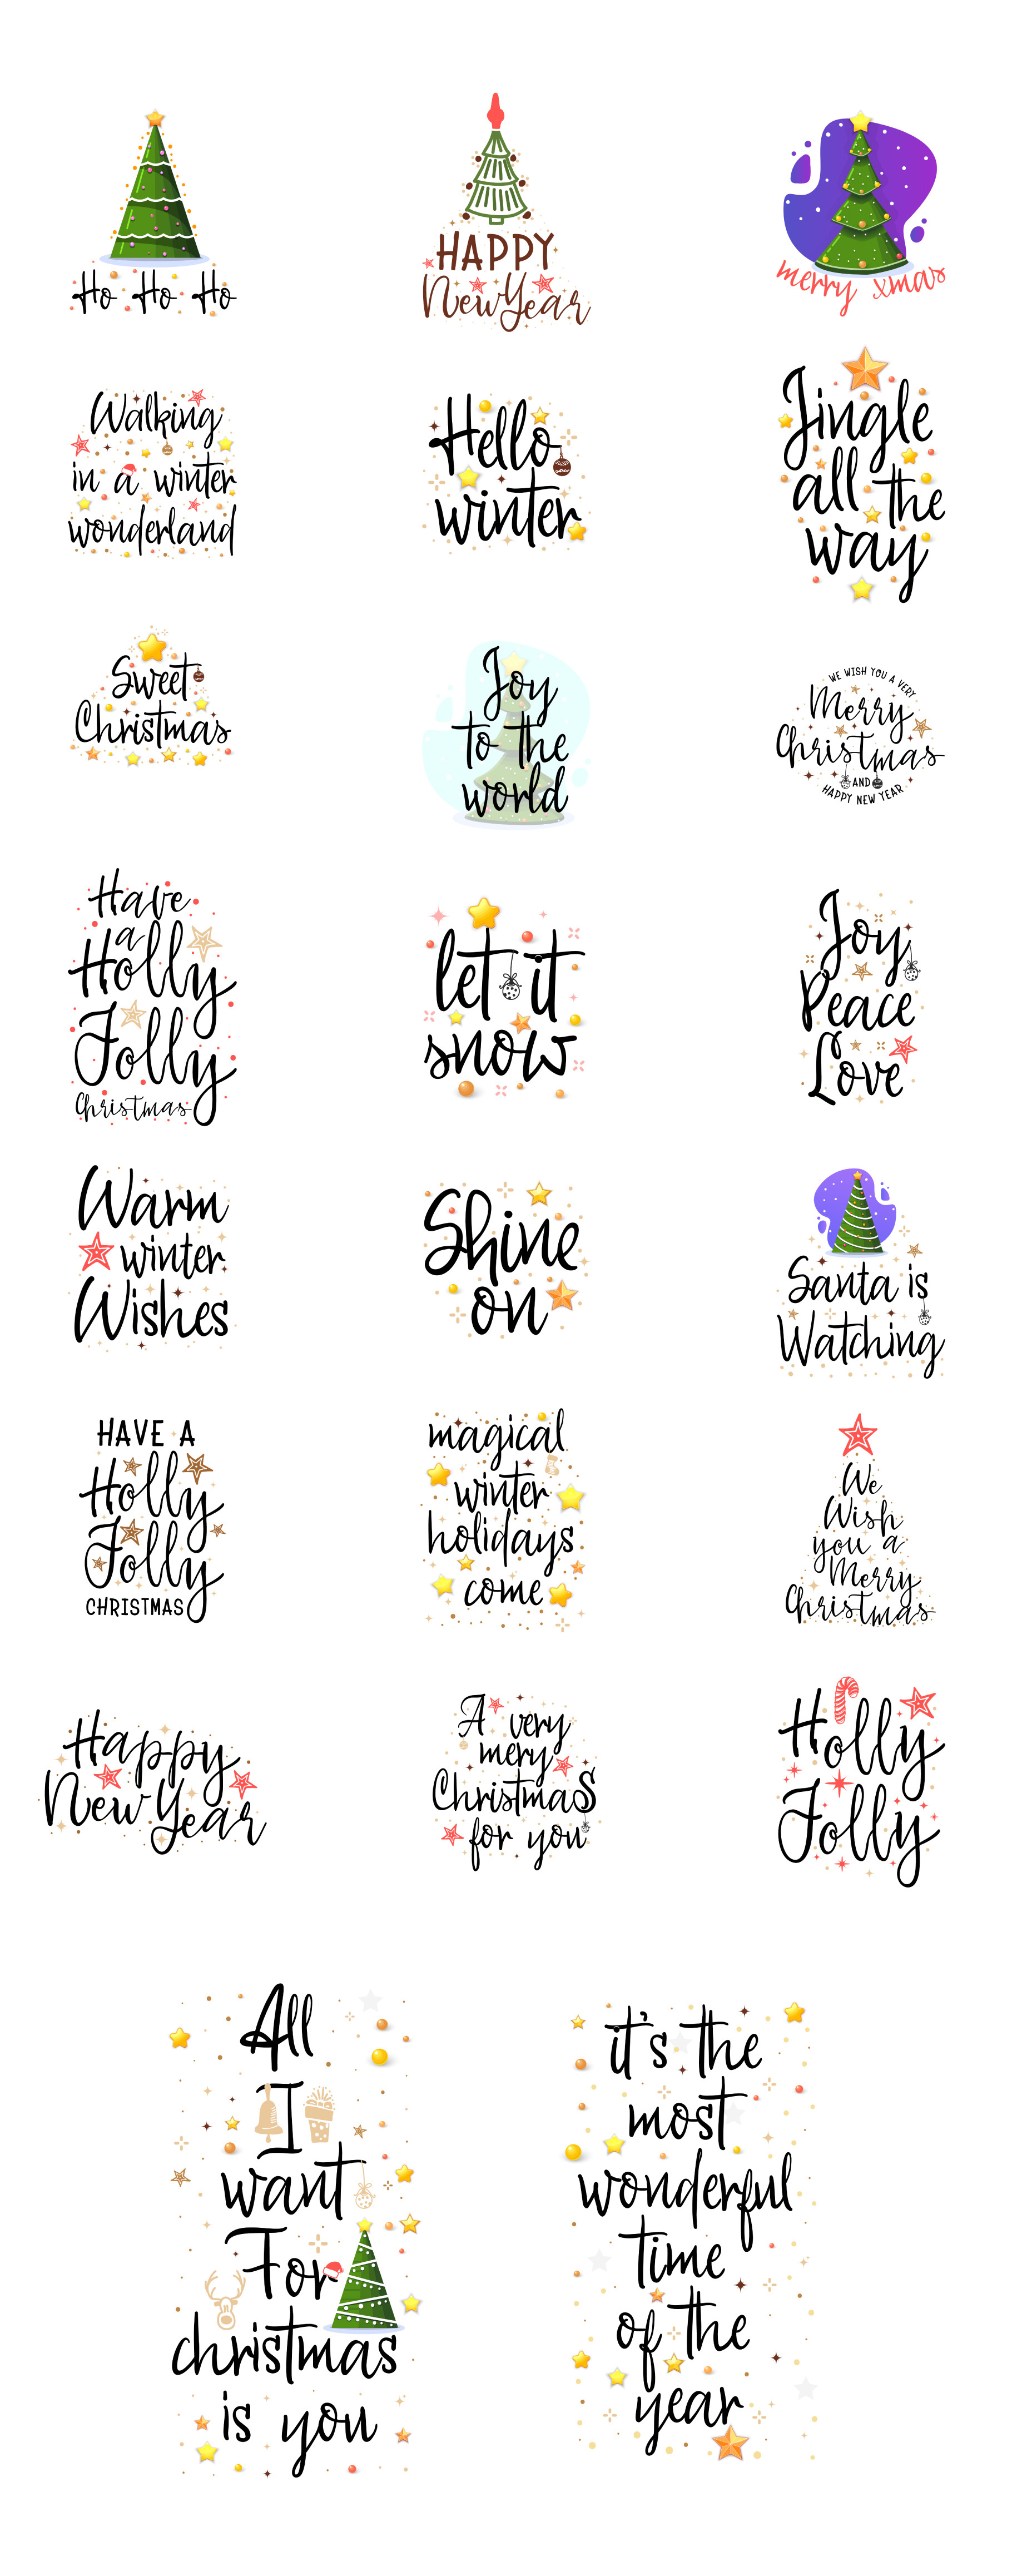 Ho Ho Ho
HAPPY
New Year
merry xmas
Walking
in a winter
wonderland
Hello
winter
Jingle
all the
way
Sweet
Christmas
Joy
to the
world
WE WISH YOU A VERY
Merry
Christmas
AND
HAPPY NEW YEAR
Have
a
Holly
Jolly
Christmas
let it
snow
Joy
Peace
Love
Warm
winter
Wishes
Shine
on
Santa is
Watching
HAVE A
Holly
Jolly
CHRISTMAS
magical
winter
holidays
come
We
Wish
you a
Merry
Christmas
Happy
New Year
A very
mery
ChristmaS
for you
Holly
Jolly
All
I
want
For
christmas
is you
it's the
most
wonderful
time
of the
year